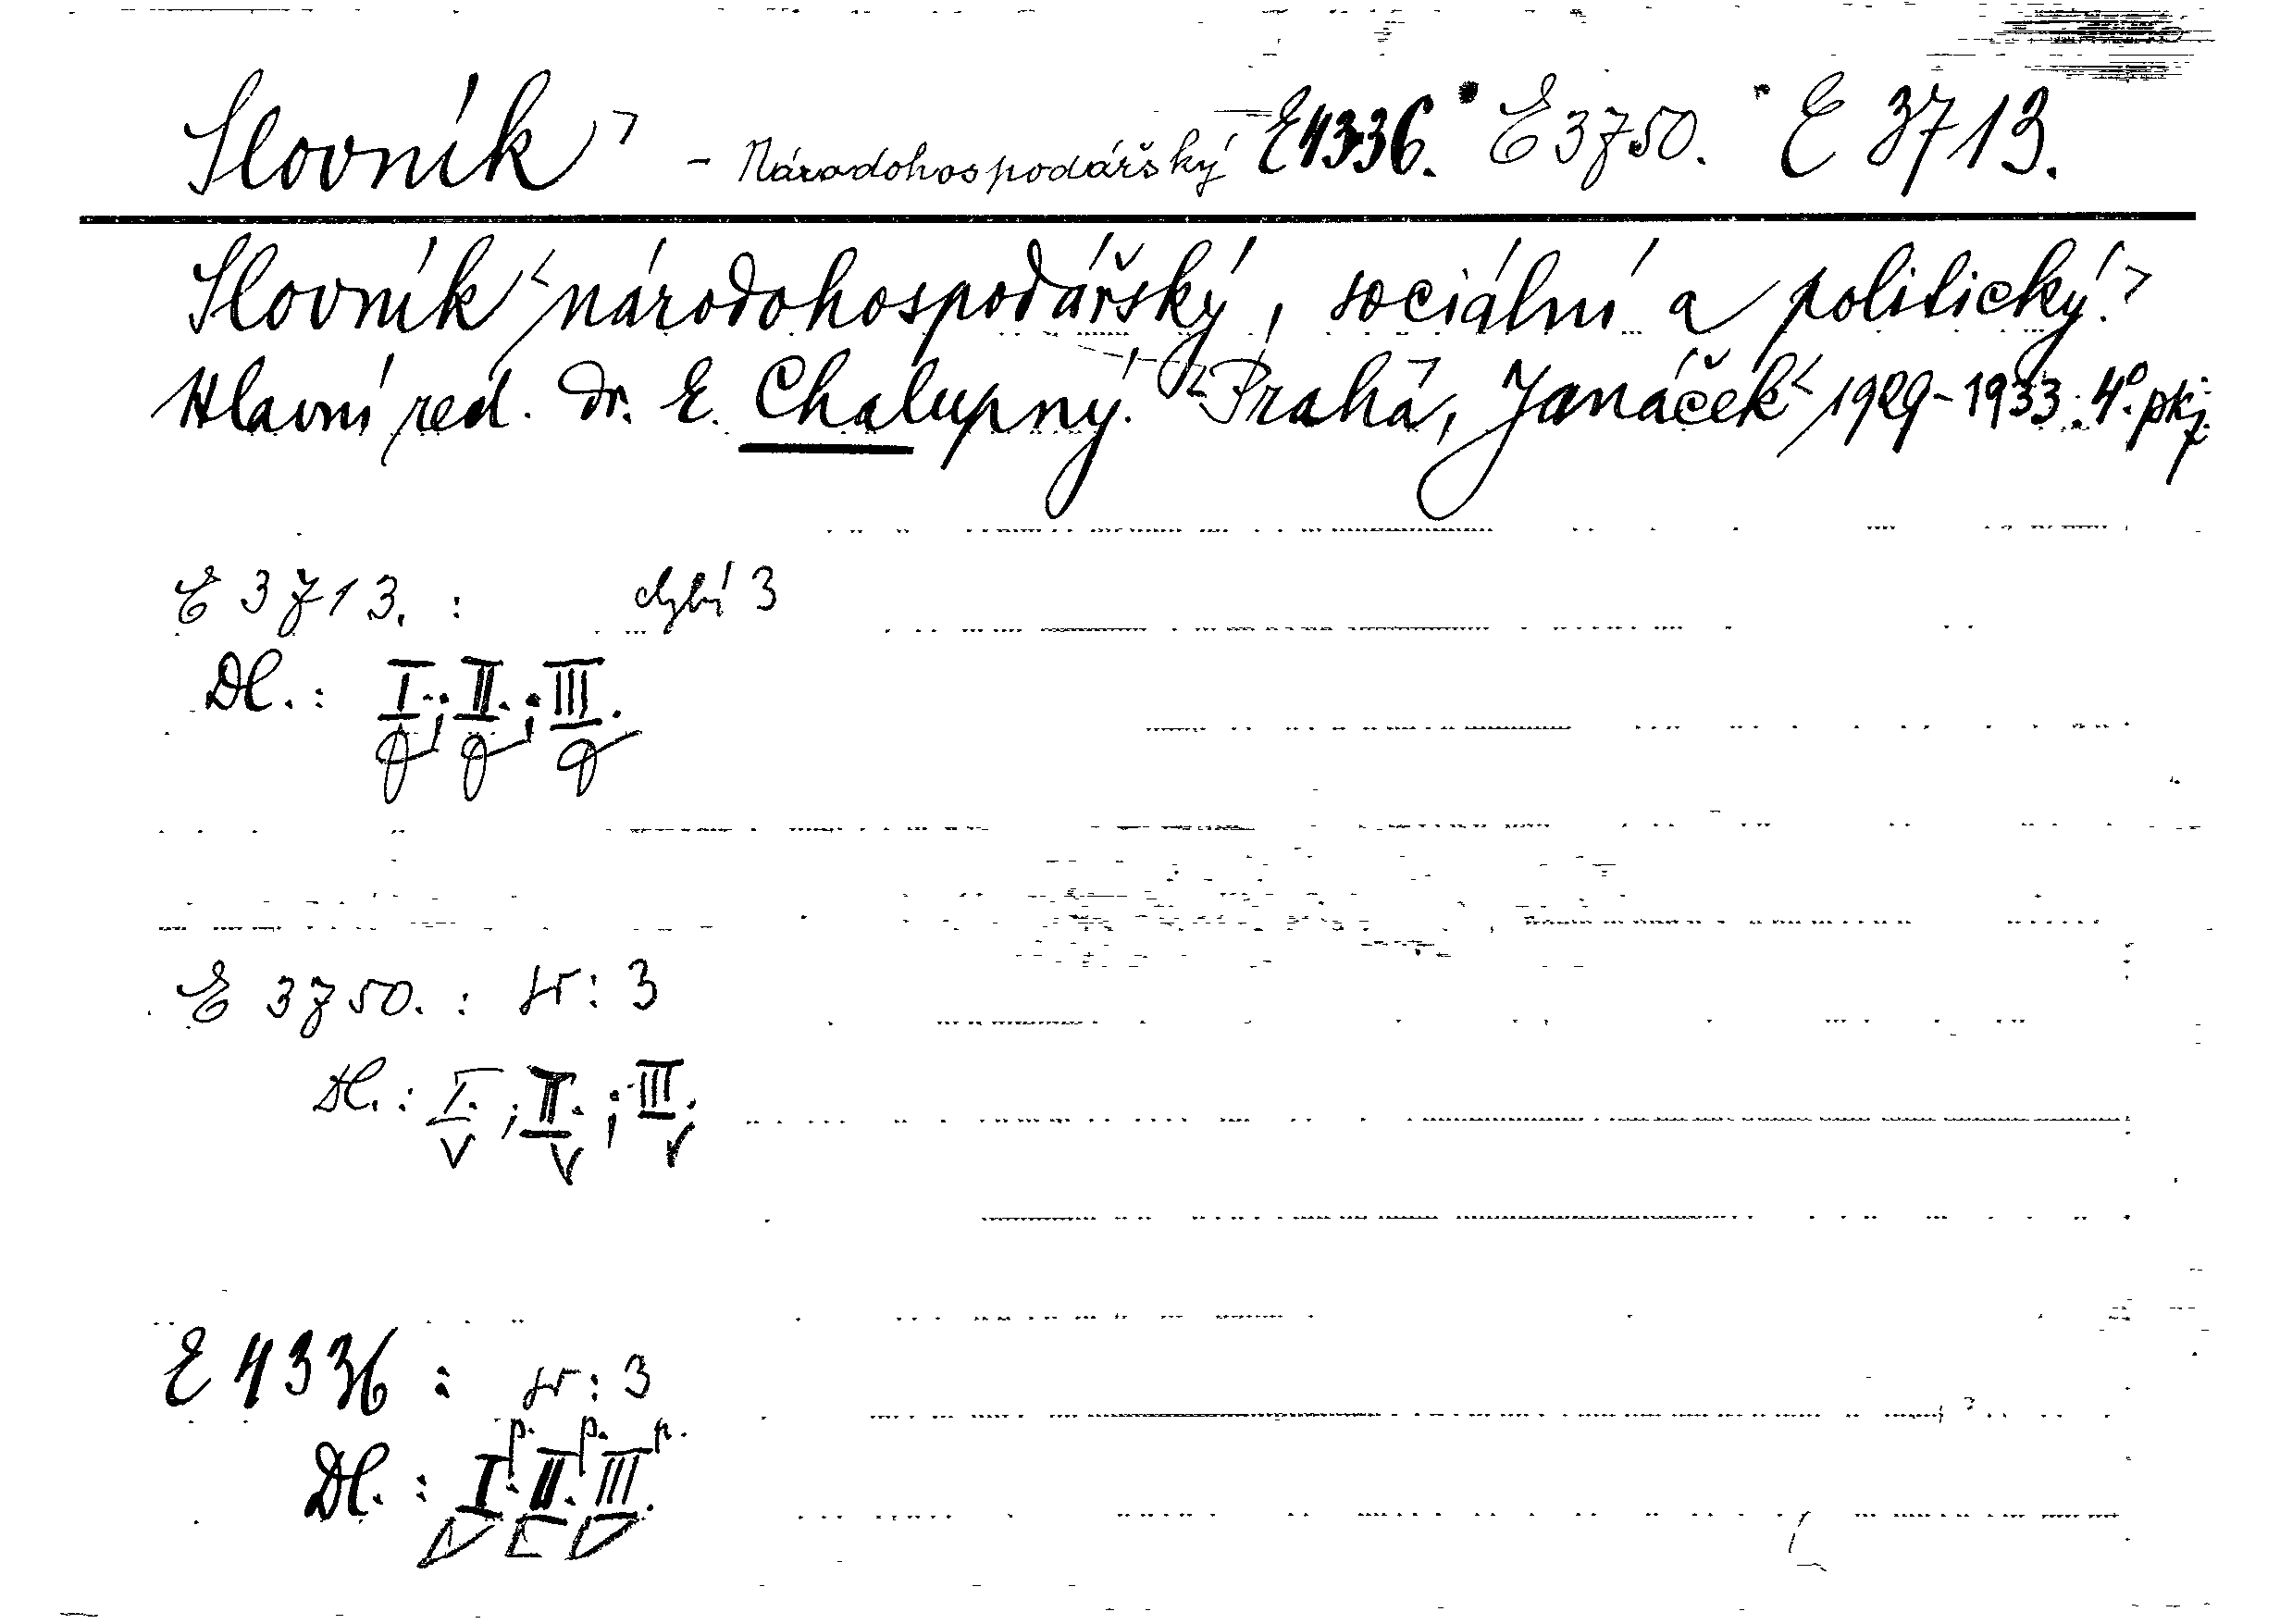 Slovník - Národohospodářský E 4336. E 3750. E 3713.
Slovník národohospodářský, sociální a politický.
Hlavní red. Dr. E. Chalupný. Praha, Janáček 1929-1933. 4°. pkj.
E 3713. : chybí 3
Dl. : I. ; II. ; III.
E 3750. : sv : 3
Dl. : I. ; II. ; III.
V V V
E 4336 : sv : 3
p. p. p.
Dl. : I. II. III.